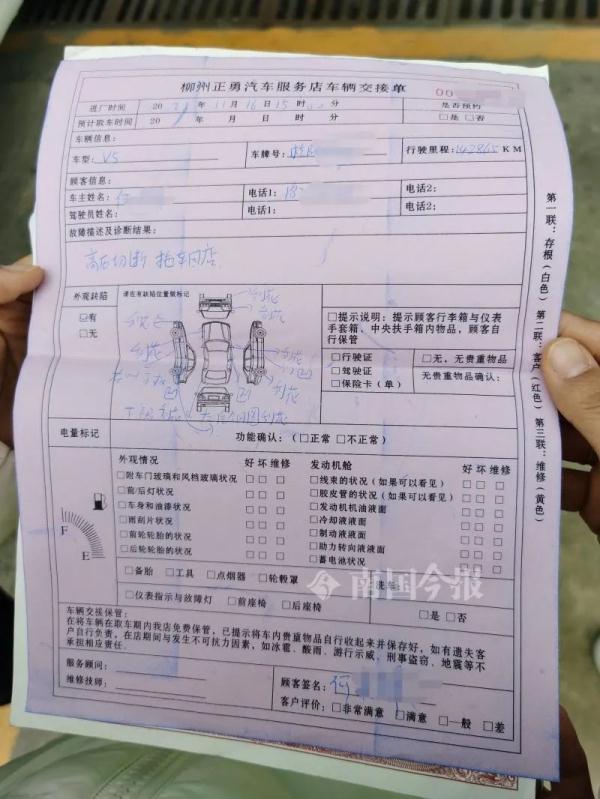 柳州正勇汽车服务店车辆交接单
00
进厂时间 20 年 11月 16日 15时 分 是否预约
预计取车时间: 20 年 月 日 时 分 □是 □否
车辆信息:
车型: V5 车牌号: 行驶里程: 142865 KM
顾客信息:
车主姓名: 何 电话1: 18 电话2:
驾驶员姓名: 电话1: 电话2:
故障描述及诊断结果:
高石切断 拖车回店
外观缺陷
☑有
□无
请在有缺陷位置做标记
□提示说明: 提示顾客行李箱与仪表
手套箱、中央扶手箱内物品, 顾客自
行保管
□行驶证
□驾驶证
□保险卡(单)
□无, 无贵重物品
无贵重物品确认:
电量标记
F E
功能确认: (□正常 □不正常)
外观情况 好 坏 维修
□附车门玻璃和风档玻璃状况 □ □ □
□前/后灯状况 □ □ □
□车身和油漆状况 □ □ □
□雨刮片状况 □ □ □
□前轮轮胎的状况 □ □ □
□后轮轮胎的状况 □ □ □
发动机舱 好 坏 维修
□线束的状况(如果可以看见) □ □ □
□胶皮管的状况(如果可以看见) □ □ □
□发动机机油液面 □ □ □
□冷却液液面 □ □ □
□制动液液面 □ □ □
□助力转向液液面 □ □ □
□蓄电池状况 □ □ □
□备胎 □工具 □点烟器 □轮毂罩
□仪表指示与故障灯 □前座椅 □后座椅
洗车:
□是 □否
车辆交接保管:
在将车辆在取车期内我店免费保管, 已提示将车内贵重物品自行收起来并保存好, 如有遗失客
户自行负责, 在店期间与发生不可抗力因素, 如冰雹、酸雨、游行示威、刑事盗窃、地震等不
承担相应责任。
服务顾问:
维修技师:
顾客签名: 何
客户评价: □非常满意 □满意 □一般 □差
第一联: 存根(白色) 第二联: 客户(红色) 第三联: 维修(黄色)
南国今报